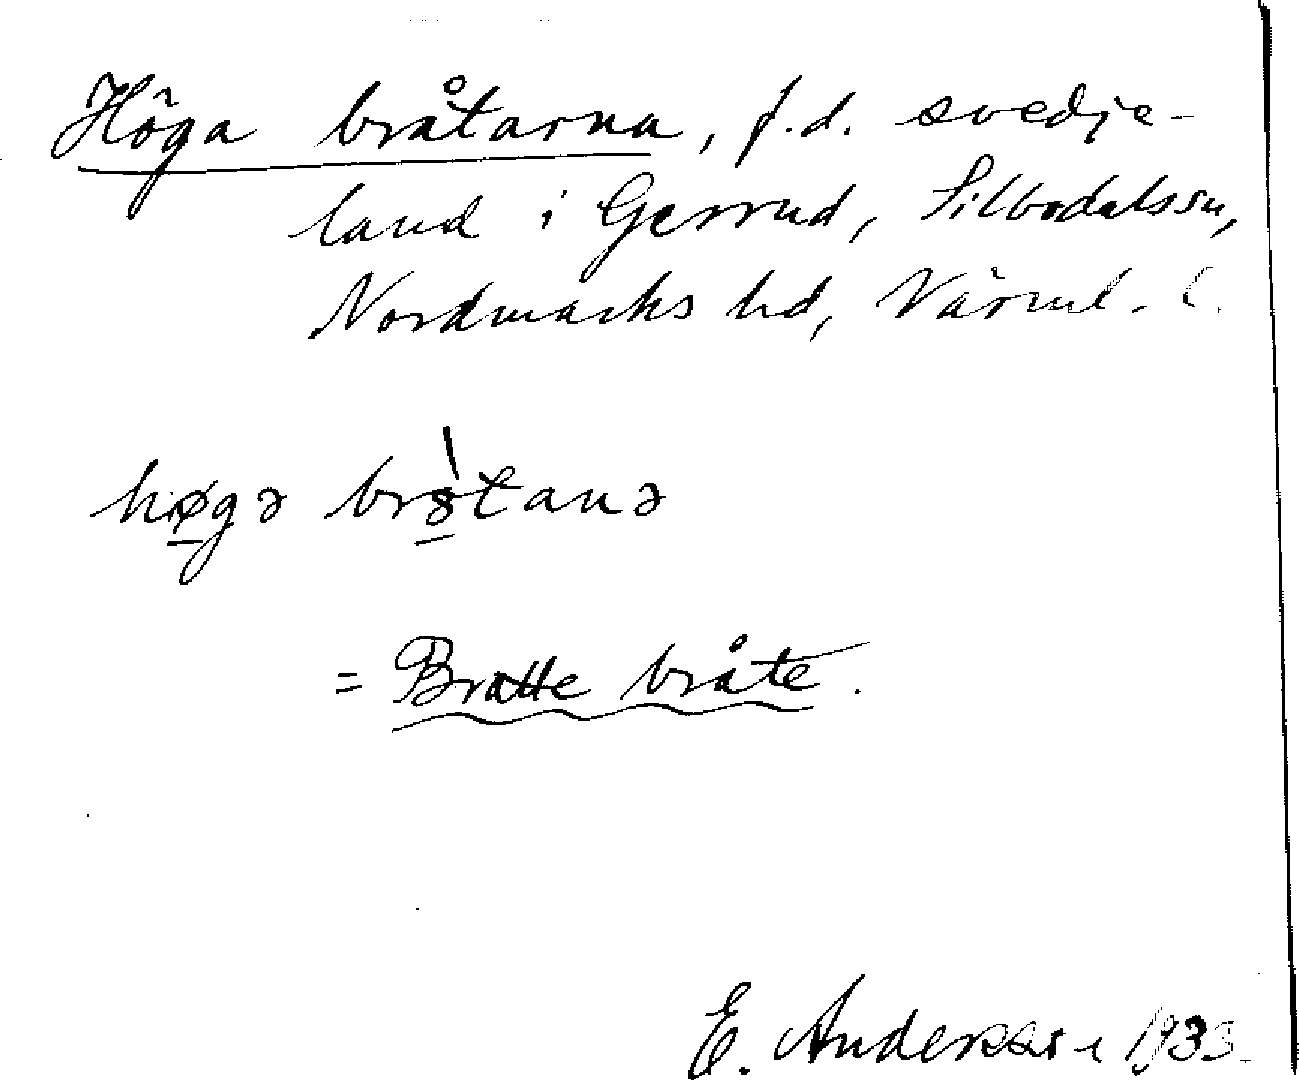 Höga bråtarna, f.d. svedje-
land i Gerrud, Silbodals sn,
Nordmarks hd, Värml. l.
høgə brȯ̀tanə
= Bratte bråte.
E. Andersson 1933.